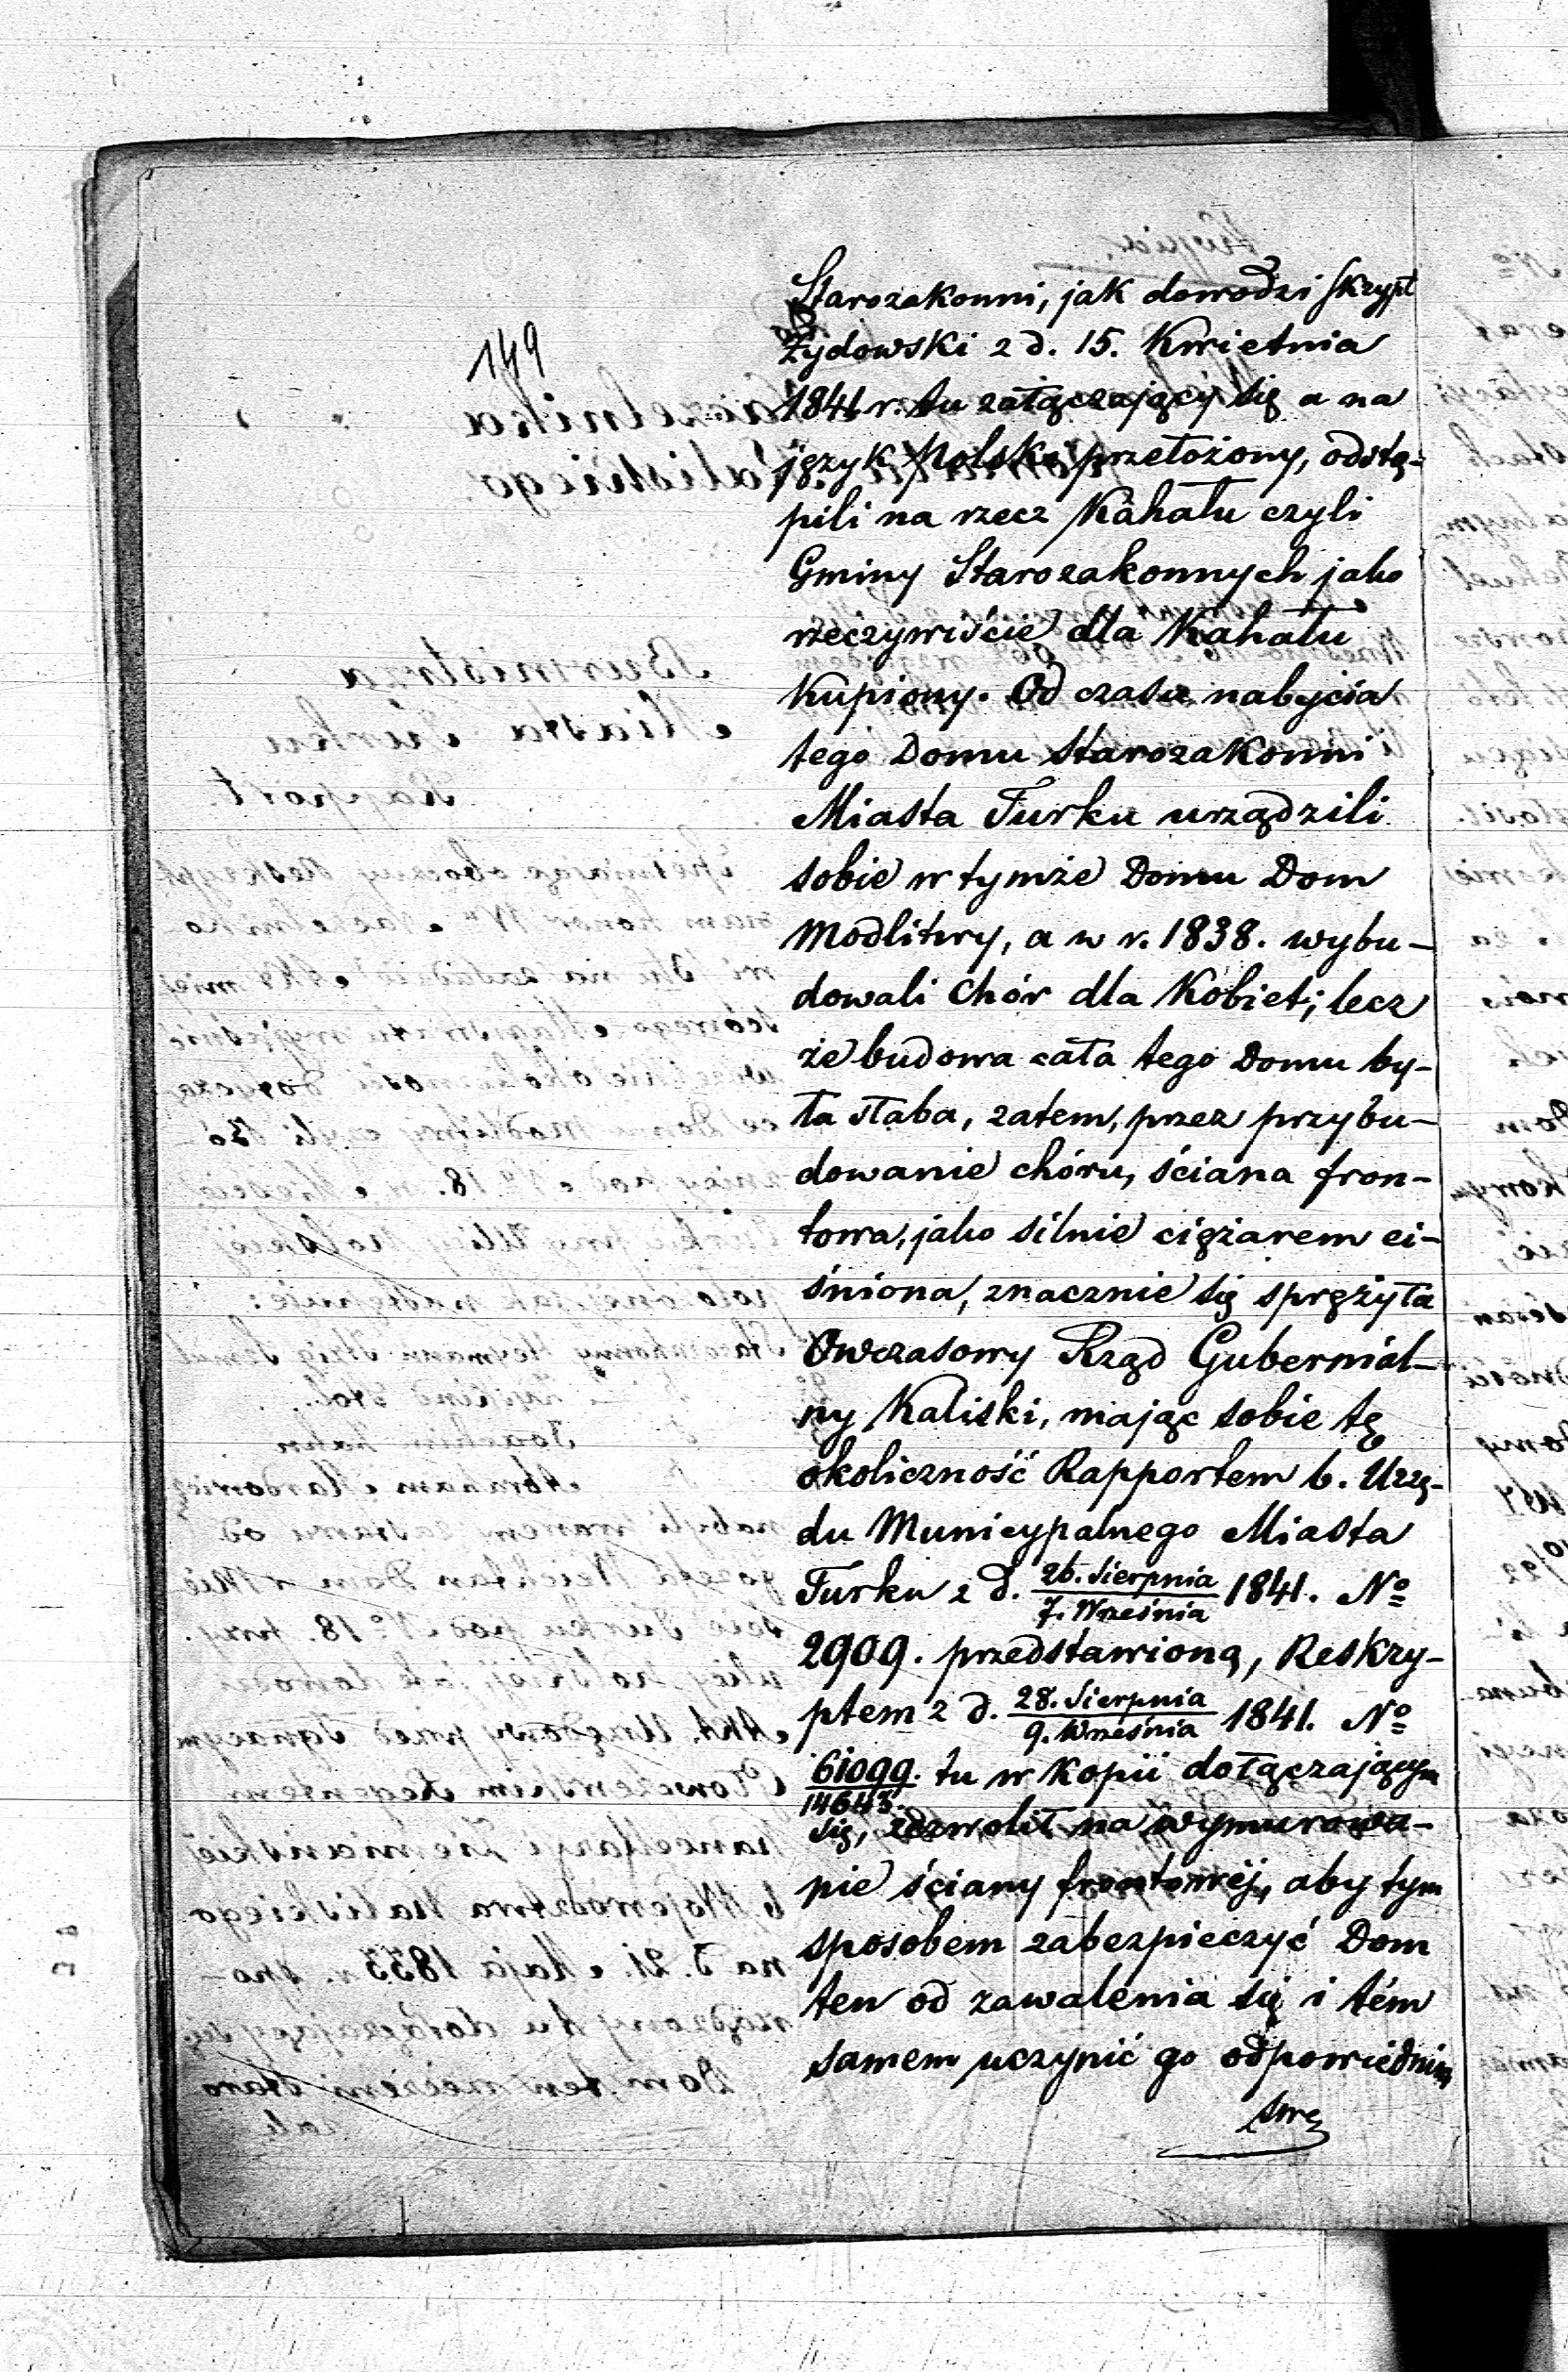 149
Starozakonni, jak dowodzi skrypt
Żydowski z d. 15. Kwietnia
1841 r. tu załączający się a na
język Polski przełożony, odstą-
pili na rzecz Kahału czyli
Gminy Starozakonnych jako
rzeczywiście dla Kahału
kupiony. Od czasu nabycia
tego Domu Starozakonni
Miasta Turku urządzili
sobie w tymże Domu Dom
Modlitwy, a w r. 1838. wybu-
dowali Chór dla Kobiet; lecz
że budowa cała tego Domu by-
ła słaba, zatem, przez przybu-
dowanie chóru, ściana fron-
towa, jako silnie ciężarem ci-
śniona, znacznie się sprężyła
Owczasowy Rząd Gubernial-
ny Kaliski, mając sobie tę
okoliczność Rapportem b. Urzę-
du Municypalnego Miasta
Turku z d. 26. Sierpnia / 7. Września 1841. No
2909. przedstawioną, Reskry-
ptem z d. 28. Sierpnia / 9. Września 1841. No
61099. / 14643. tu w Kopii dołączającym
się, zezwolił na wymurowa-
nie ściany frontowéj, aby tym
sposobem zabezpieczyć Dom
ten od zawalenia się i tém
samem uczynić go odpowiednim